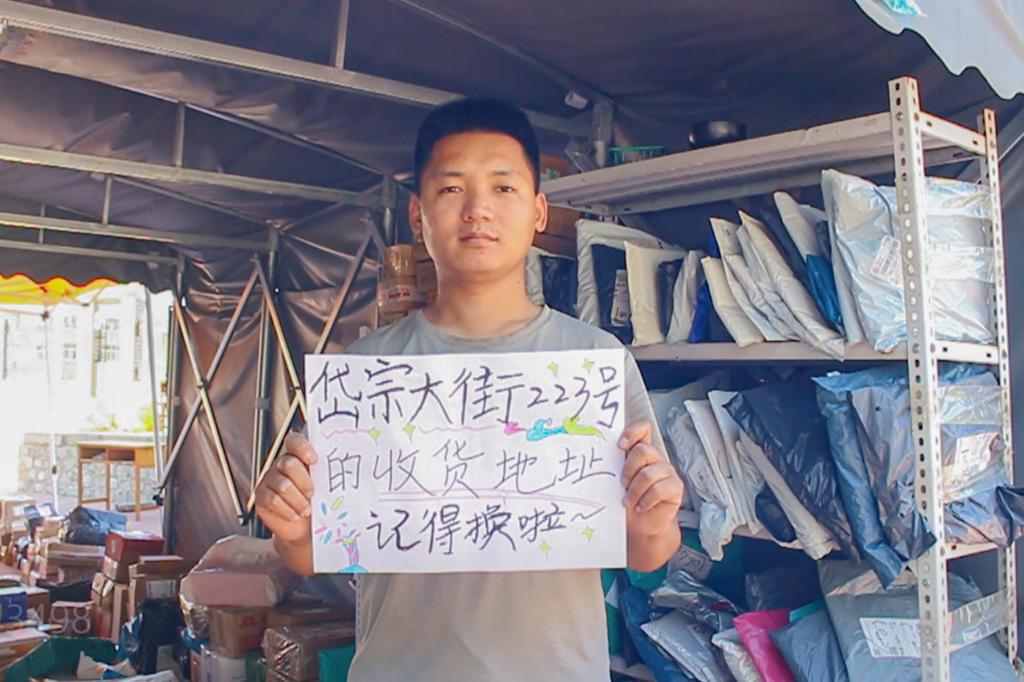 岱宗大街223号
的收货地址
记得换啦~